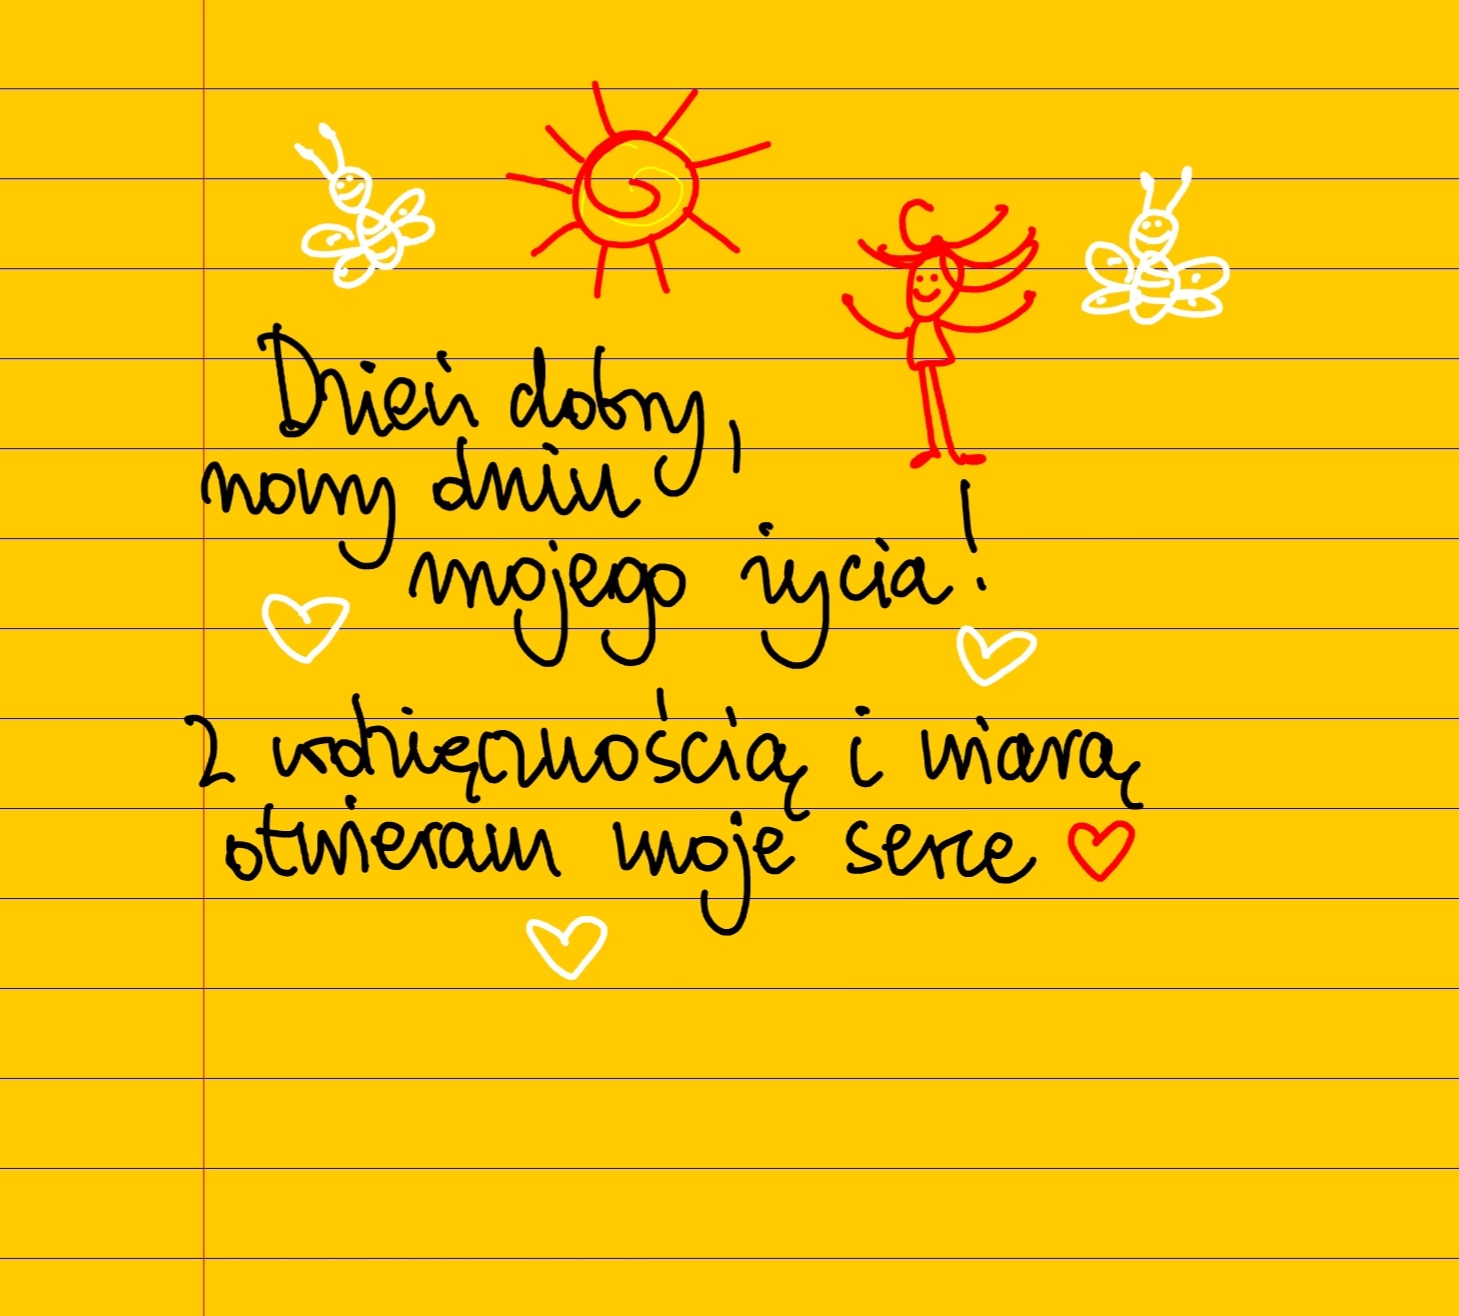 Dzień dobry,
nowy dniu
mojego życia!
Z wdzięcznością i wiarą
otwieram moje serce